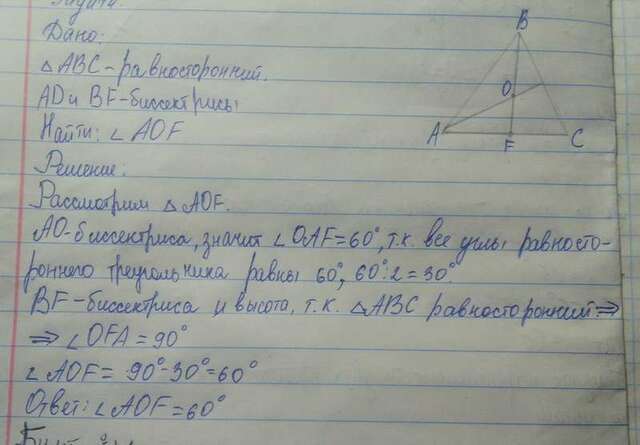 Задача.
Дано:
△ABC - равносторонний.
AD и BF - биссектрисы
Найти: ∠AOF
Решение:
Рассмотрим △AOF.
AO-биссектриса, значит ∠OAF=60°, т.к. все углы равносто-
роннего треугольника равны 60°, 60°:2=30°.
BF-биссектриса и высота, т.к. △ABC равносторонний ⇒
⇒ ∠OFA=90°
∠AOF= 90°-30°=60°
Ответ: ∠AOF=60°
B
O
A
F
C